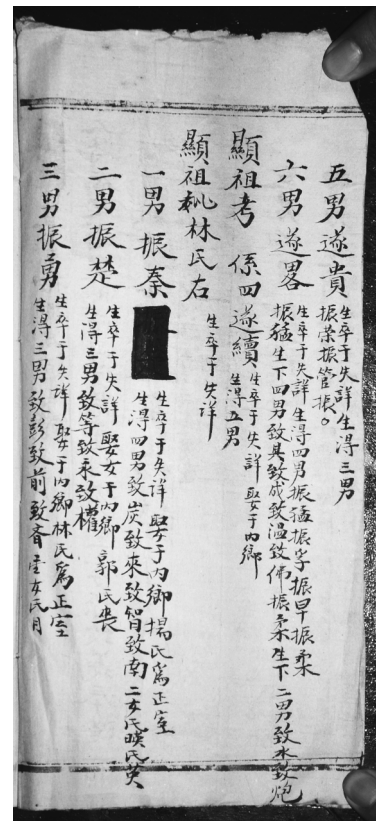 五男遂貴
生卒于失詳生得三男
振荣振管振○
六男遂畧
生卒于失詳生得四男振猛振孚振早振柔
振猛生下四男致其致成致温致佛振柔生下二男致水致炮
顯祖考 係四遂續
生卒于失詳 娶于内鄉
生得五男
顯祖妣林氏右
生卒于失詳
一男振秦
生卒于失詳 娶于内鄉揚氏爲正室
生得四男致炭致來致智致南 二女氏 氏英
二男振楚
生卒于失詳 娶女于内鄉 郭氏喪
生得三男致等致來致權
三男振勇
生卒于失詳 娶于内鄉林氏爲正室
生得三男致彭致前致 女氏月